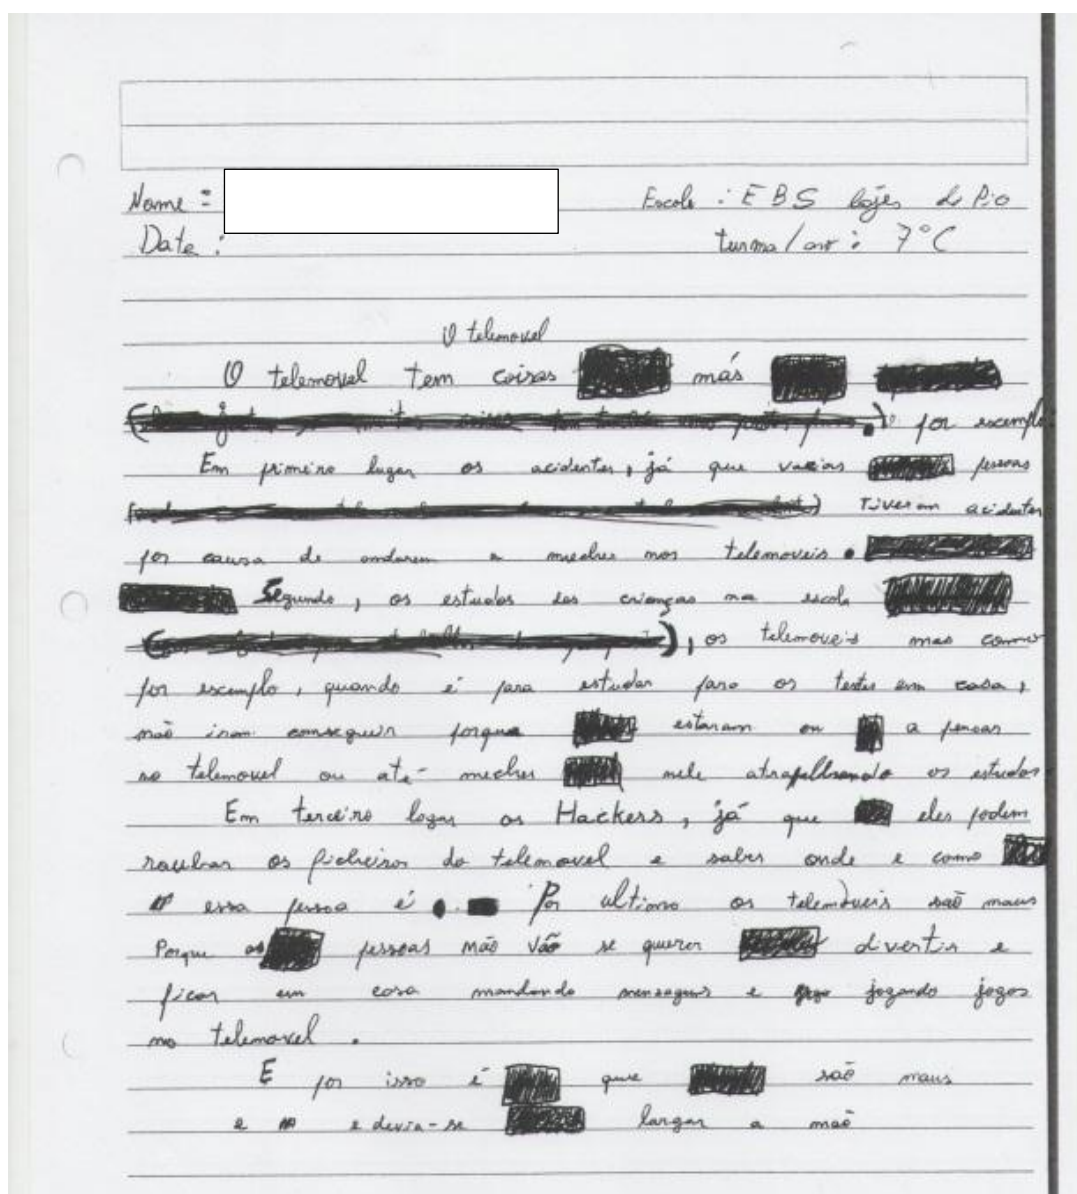 Nome :
Escola : EBS lajes do Pico
Date :
turma/ano : 7°C
O telemovel
O telemovel tem coisas más
. por escemplo
Em primeiro lugar os acidentes, já que varias pessoas
Tiveram acidentes
por causa de andarem a mecher nos telemoveis.
Segundo, os estudos das crianças na escola
, os telemoveis mas como
por escemplo, quando é para estudar para os testes em casa,
não iram conseguir porque estaram ou a pensar
no telemovel ou até mecher nele atrapalhando os estudos
Em terceiro lugar os Hackers, já que eles podem
roubar os ficheiros do telemovel e saber onde e como
essa pessoa é . Por ultimo os telemóveis são maus
Porque as pessoas não vão se querer divertir e
ficar em casa mandando mensagens e jogando jogos
no telemovel.
E por isso é que são maus
e e devia-se largar a mão